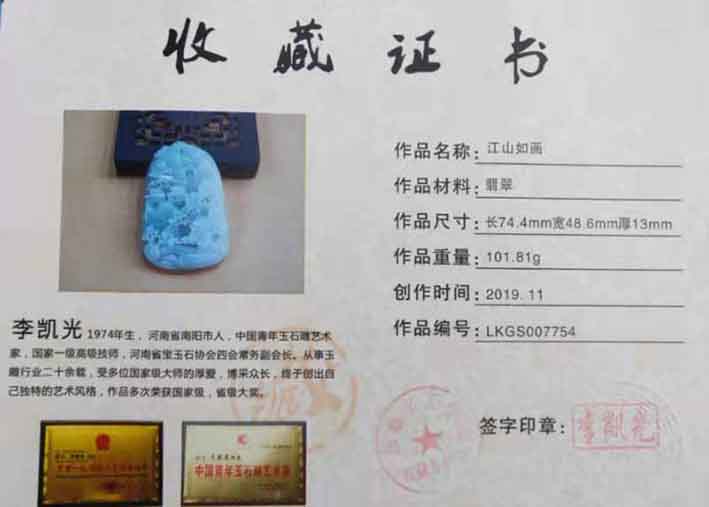 收藏证书
作品名称：江山如画
作品材料：翡翠
作品尺寸：长74.4mm宽48.6mm厚13mm
作品重量：101.81g
创作时间：2019.11
作品编号：LKGS007754
李凯光 1974年生，河南省南阳市人，中国青年玉石雕艺术
家，国家一级高级技师，河南省宝玉石协会四会常务副会长。从事玉
雕行业二十余载，受多位国家级大师的厚爱，博采众长，终于创出自
己独特的艺术风格，作品多次荣获国家级，省级大奖。
中国青年玉石雕艺术家
签字印章：李凯光